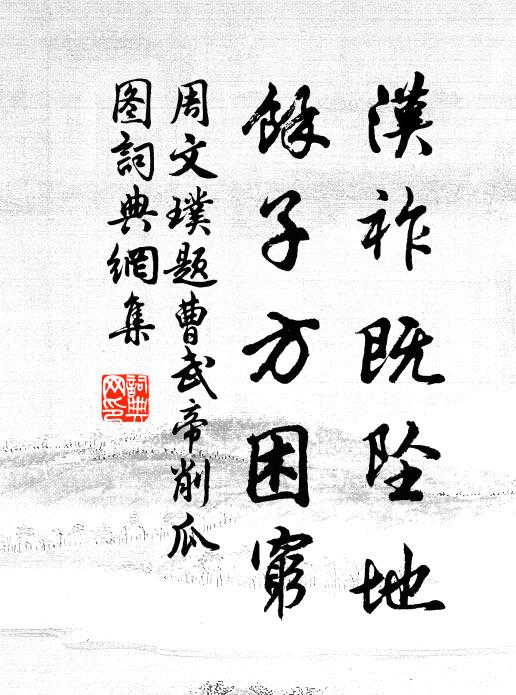 漢祚既墜地
餘子方困窮
周文璞題曹武帝削瓜
图詞典網集
詞典网印